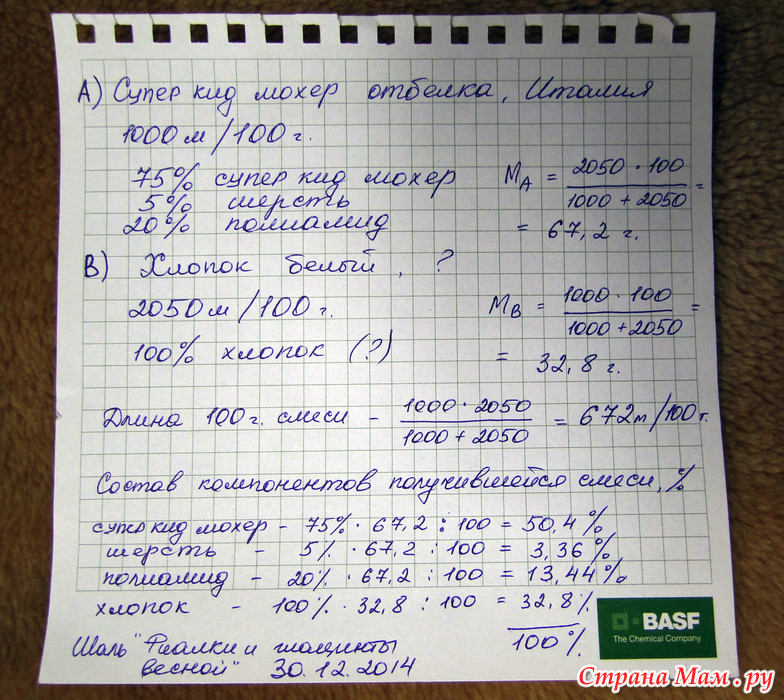 А) Супер кид мохер отбелка, Италия
1000 м /100 г.
75% супер кид мохер
5% шерсть
20% полиамид
MA = 2050 · 100 / 1000 + 2050 =
= 67,2 г.
В) Хлопок белый, ?
2050 м /100 г.
100% хлопок (?)
MB = 1000 · 100 / 1000 + 2050 =
= 32,8 г.
Длина 100 г. смеси – 1000 · 2050 / 1000 + 2050 = 672 м/100 г.
Состав компонентов получившейся смеси, %
супер кид мохер – 75% · 67,2 : 100 = 50,4 %
шерсть – 5% · 67,2 : 100 = 3,36 %
полиамид – 20% · 67,2 : 100 = 13,44 %
хлопок – 100% · 32,8 : 100 = 32,8 %
100 %
Шаль "Фиалки и гиацинты
весной" 30.12.2014
BASF
The Chemical Company
Страна Мам.ру